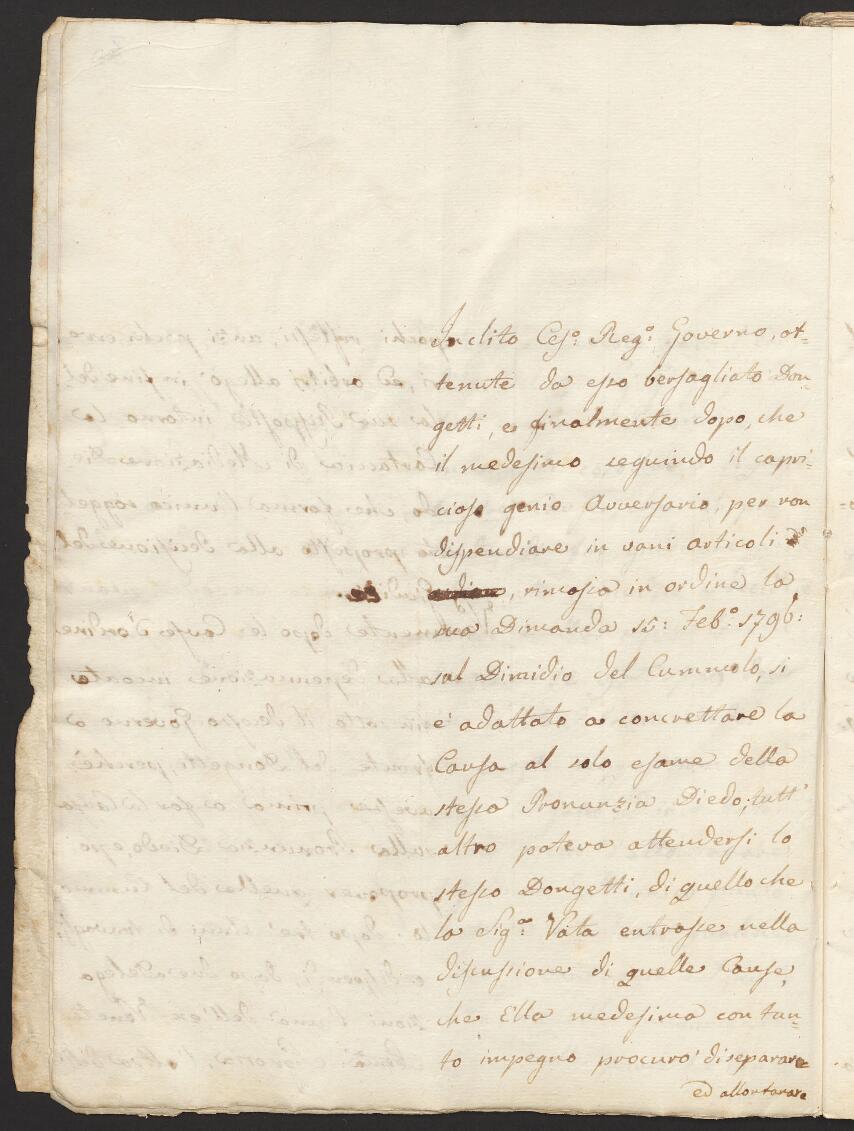 Inclito Ces:o Reg:o Governo, ot-
tenute da esso bersagliato Don-
getti, e finalmente dopo, che
il medesimo seguindo il capri-
cioso genio Avversario, per non
dispendiare in vani articoli
, rimossa in ordine la
sua Dimanda 15: Feb:o 1796:
sul Dimidio del Cummolo, si
è adattato a concrettare la
Causa al solo esame della
stessa Pronunzia Diedo; tutt'
altro poteva attendersi lo
stesso Dongetti, di quello che
la Sig:ra Vata entrasse nella
discussione di quelle Cause,
che Ella medesima con tan-
to impegno procurò di separare
ed allontanare